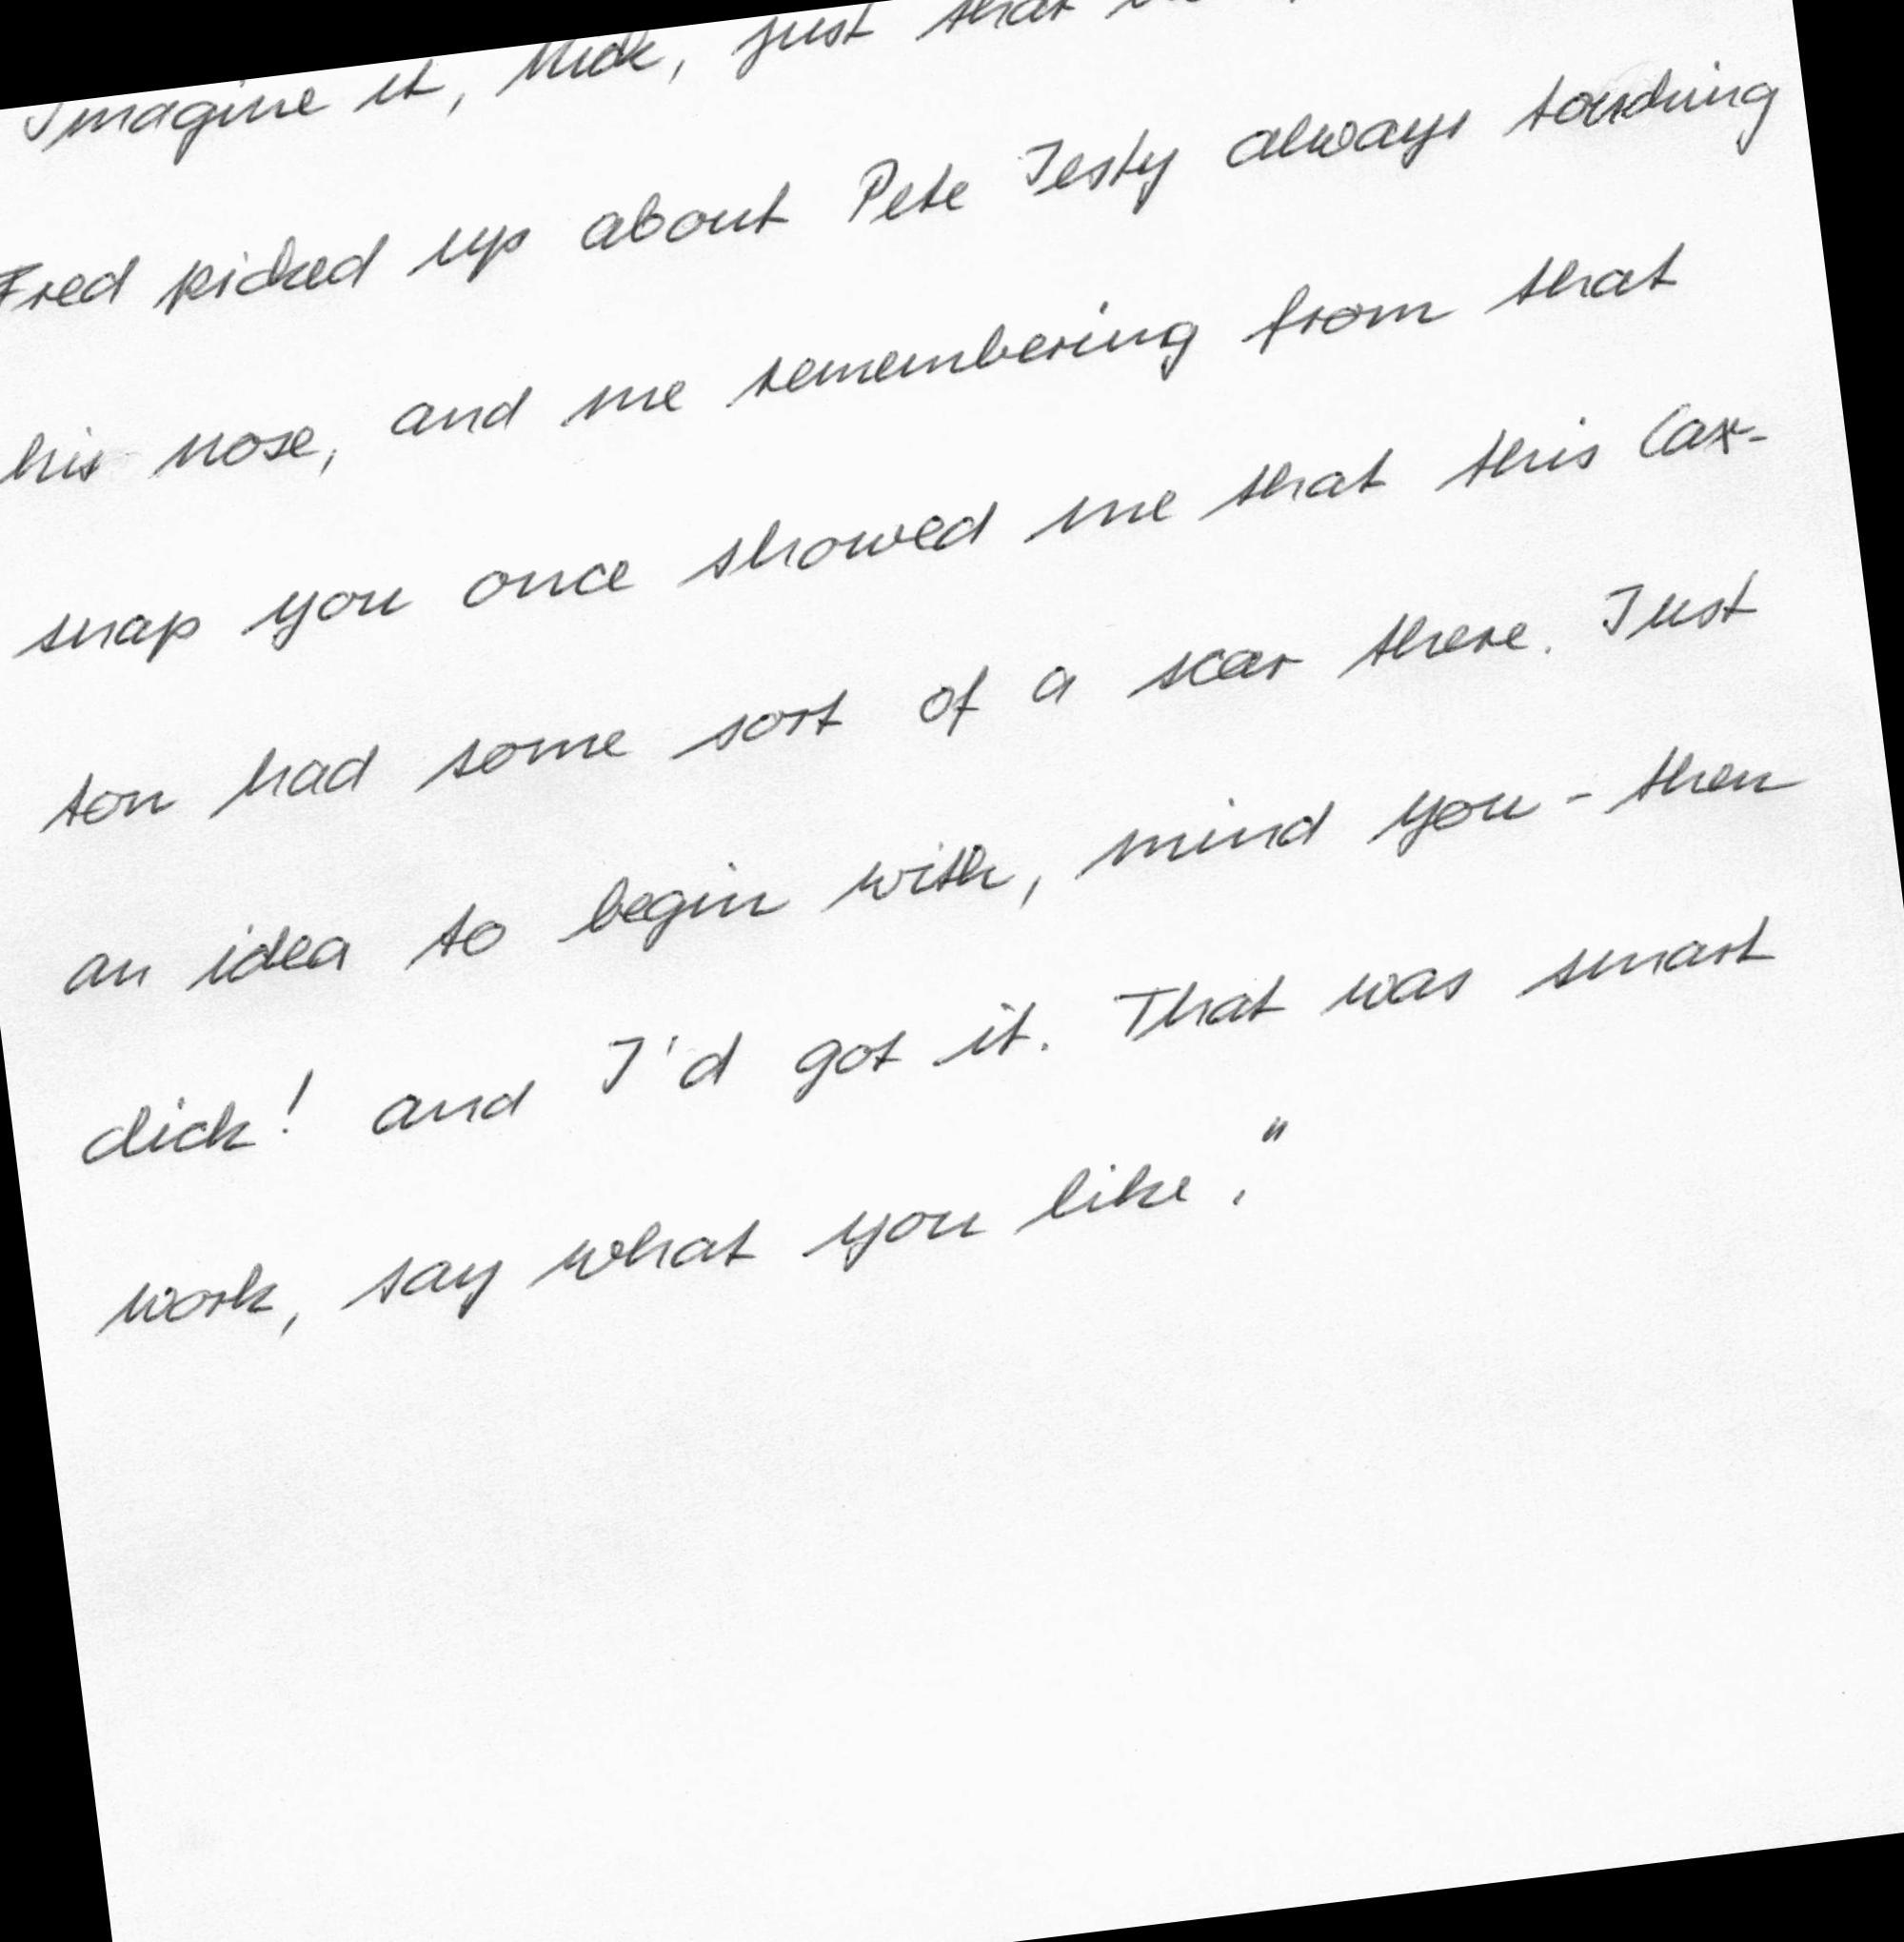 Imagine it, Nick, just that
Fred picked up about Pete Testy always touching
his nose, and me remembering from that
snap you once showed me that this Cax-
ton had some sort of a scar there. Just
an idea to begin with, mind you - then
click! and I'd got it. That was smart
work, say what you like."